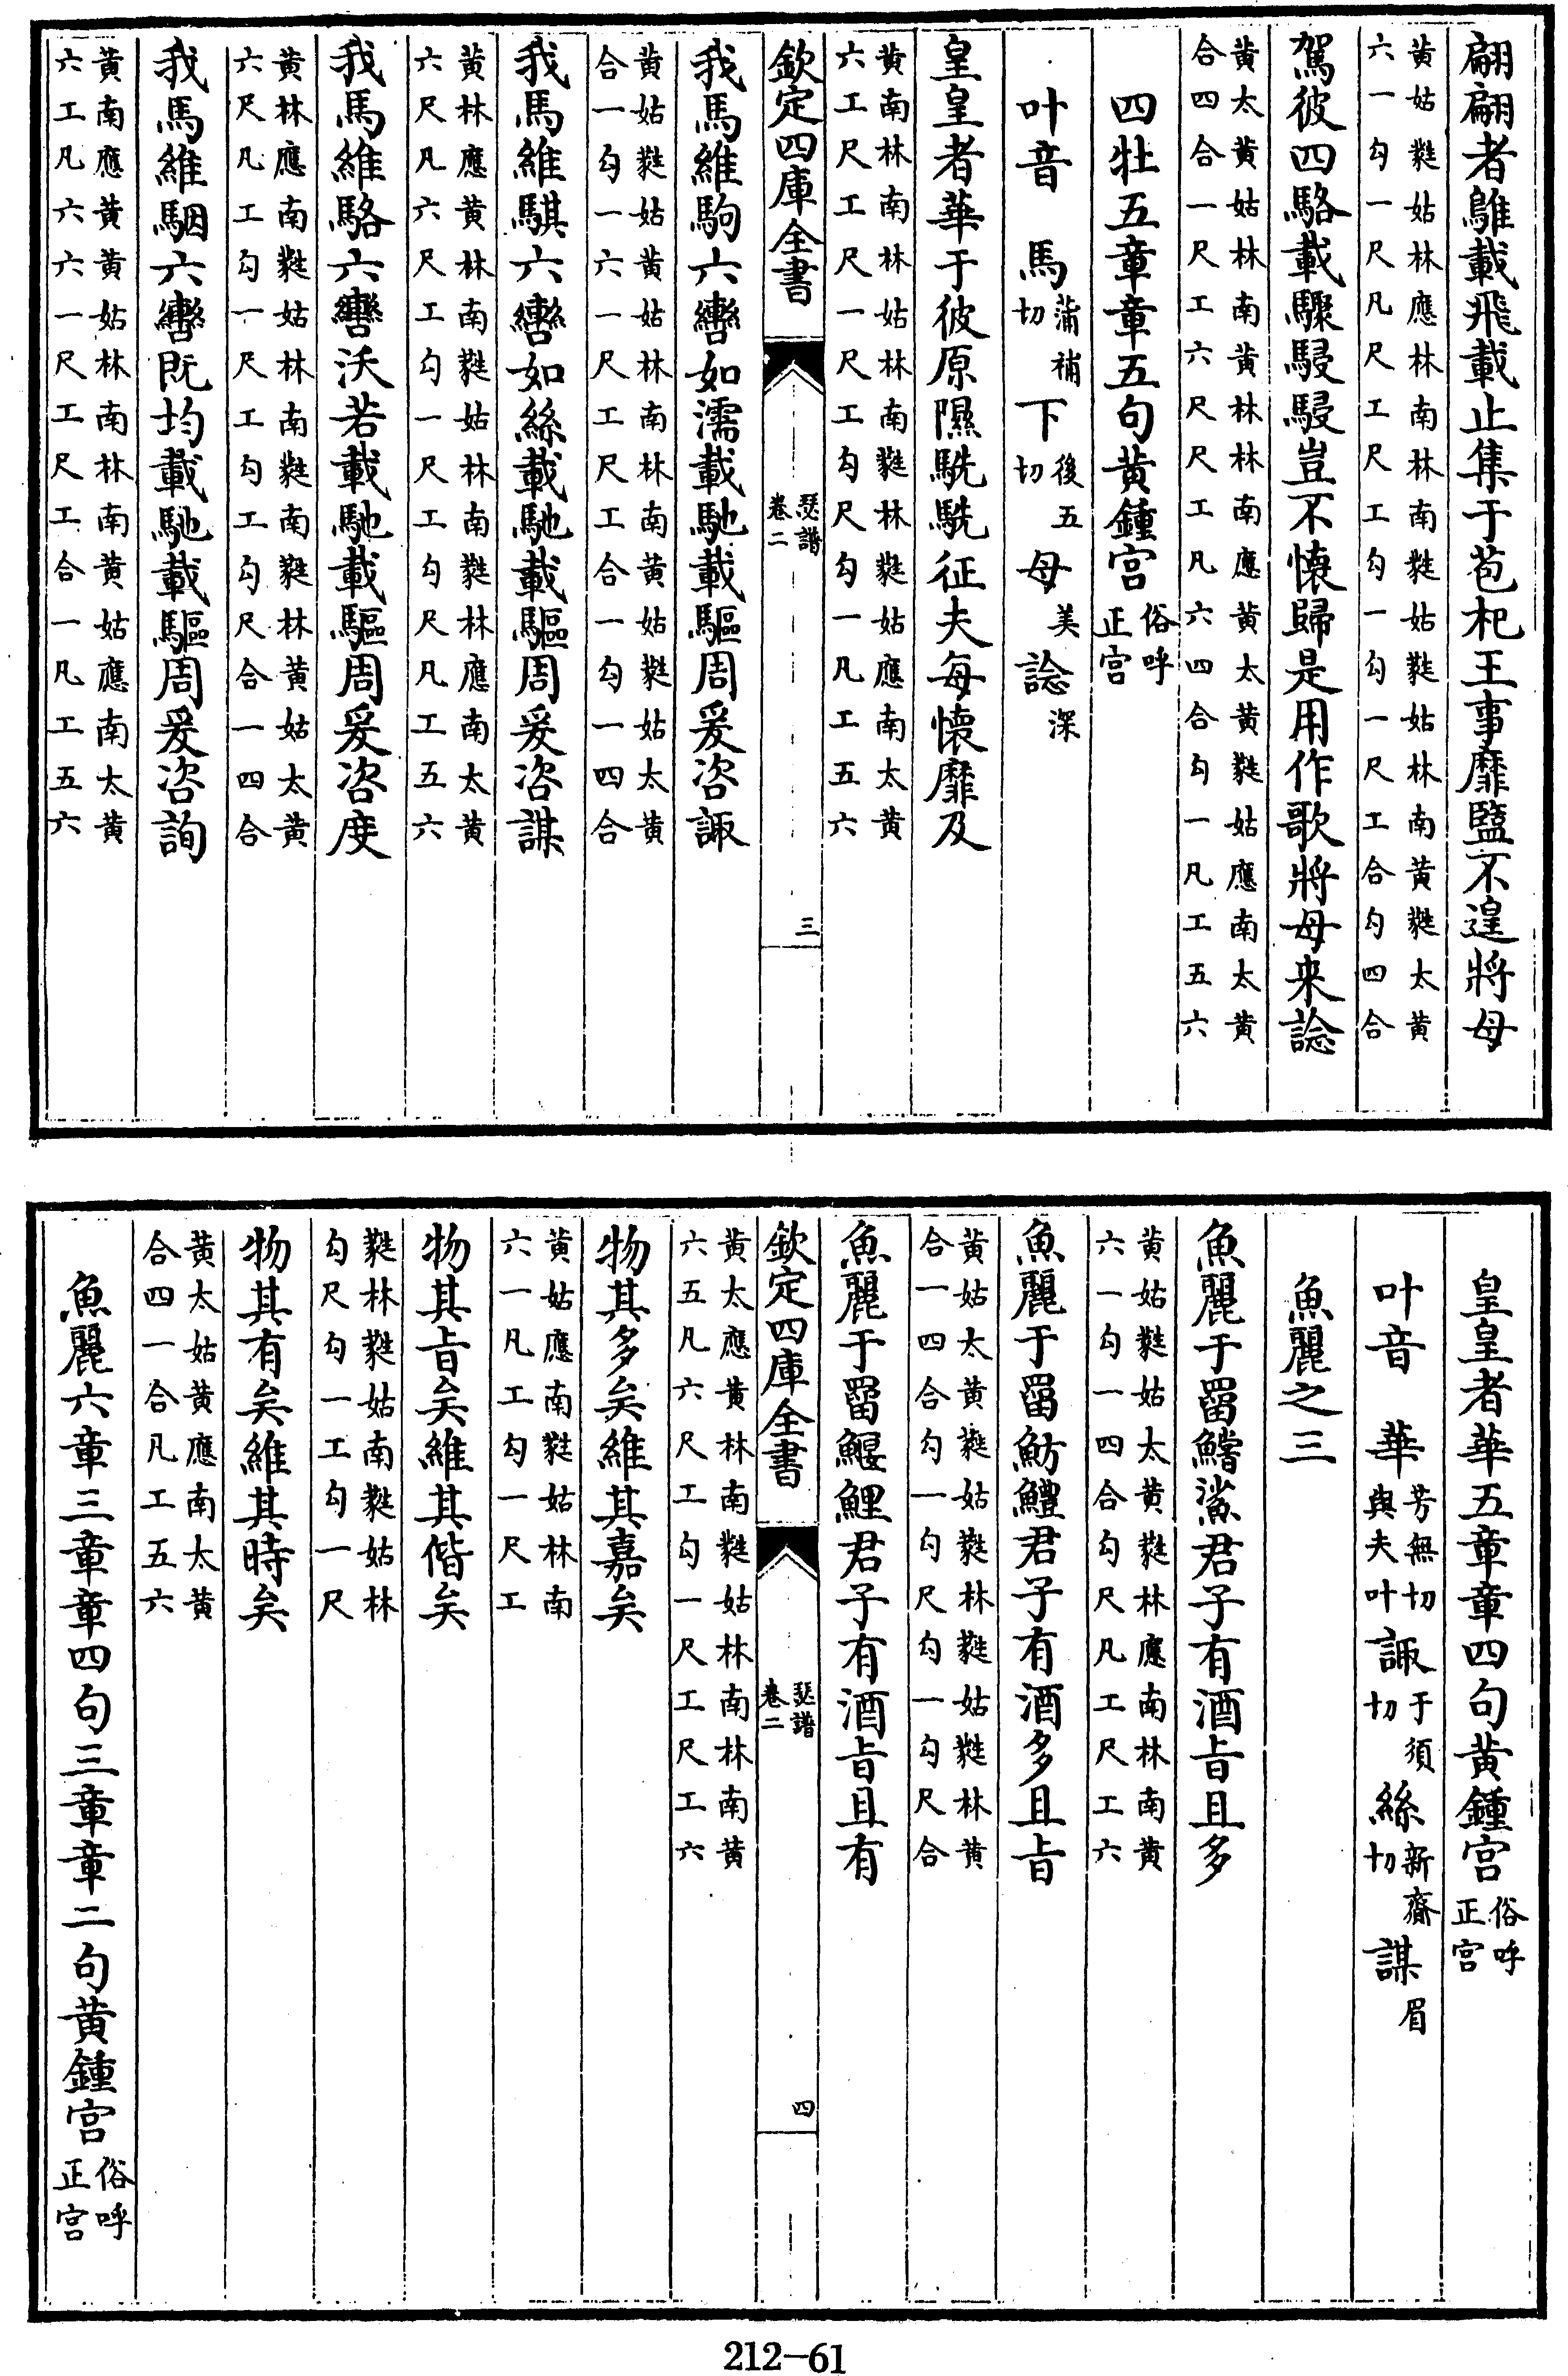 翩翩者鵻載飛載止集于苞杞王事靡盬不遑將母
黄姑蕤姑林應林南林南蕤姑蕤姑林南黄蕤太黄
六一勾一尺凡尺工尺工勾一勾一尺工合勾四合
駕彼四駱載驟駸駸豈不懷歸是用作歌將母来諗
黄太黄姑林南黄林林南應黄太黄蕤姑應南太黄
合四合一尺工六尺尺工凡六四合勾一凡工五六
四牡五章章五句黄鍾宫 俗呼正宫
叶音 馬 蒲補切 下 後五切 母 美 諗 深
皇皇者華于彼原隰駪駪征夫每懷靡及
黄南林南林姑林南蕤林蕤姑應南太黄
六工尺工尺一尺工勾尺勾一凡工五六
欽定四庫全書 瑟譜 卷二 三
我馬維駒六轡如濡載馳載驅周爰咨諏
黄姑蕤姑黄姑林南林南黄姑蕤姑太黄
合一勾一六一尺工尺工合一勾一四合
我馬維騏六轡如絲載馳載驅周爰咨謀
黄林應黄林南蕤姑林南蕤林應南太黄
六尺凡六尺工勾一尺工勾尺凡工五六
我馬維駱六轡沃若載馳載驅周爰咨度
黄林應南蕤姑林南蕤南蕤林黄姑太黄
六尺凡工勾一尺工勾工勾尺合一四合
我馬維駰六轡既均載馳載驅周爰咨詢
黄南應黄黄姑林南林南黄姑應南太黄
六工凡六六一尺工尺工合一凡工五六
皇皇者華五章章四句黄鍾宫 俗呼正宫
叶音 華 芳無切與夫叶 諏 于須切 絲 新齋切 謀 眉
魚麗之三
魚麗于罶鱨鯊君子有酒㫖且多
黄姑蕤姑太黄蕤林應南林南黄
六一勾一四合勾尺凡工尺工六
魚麗于罶魴鱧君子有酒多且㫖
黄姑太黄蕤姑蕤林蕤姑蕤林黄
合一四合勾一勾尺勾一勾尺合
魚麗于罶鰋鯉君子有酒㫖且有
黄太應黄林南蕤姑林南林南黄
六五凡六尺工勾一尺工尺工六
欽定四庫全書 瑟譜 卷二 四
物其多矣維其嘉矣
黄姑應南蕤姑林南
六一凡工勾一尺工
物其㫖矣維其偕矣
蕤林蕤姑南蕤姑林
勾尺勾一工勾一尺
物其有矣維其時矣
黄太姑黄應南太黄
合四一合凡工五六
魚麗六章三章章四句三章章二句黄鍾宫 俗呼正宫
212-61